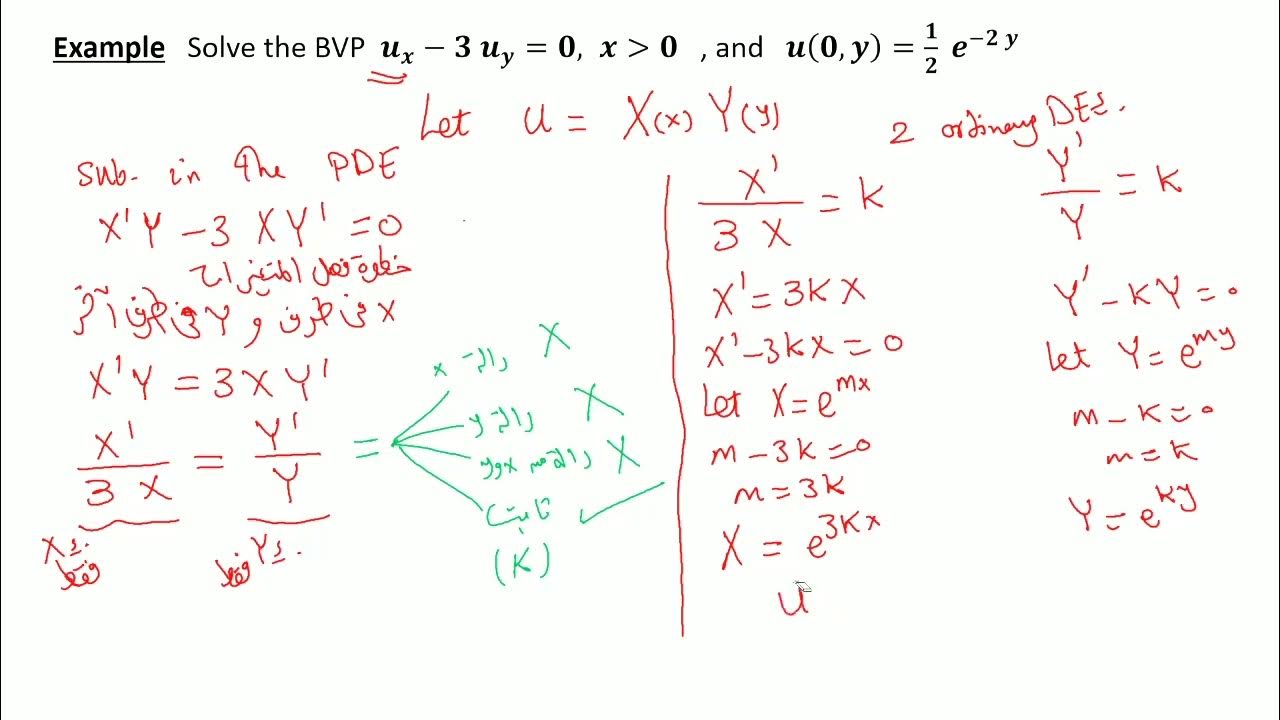 Example Solve the BVP uₓ − 3 u_y = 0, x > 0 , and u(0, y) = 1/2 e^{−2 y}
Let u = X(x) Y(y)
Sub. in the PDE
X'Y − 3 XY' = 0
خطوة فصل المتغيرات
X في طرف و Y في طرف آخر
X'Y = 3XY'
X' / 3 X = Y' / Y =
Xs. فقط
Ys. فقط
دالة x X
دالة y X
دالة x و y X
ثابت ✓
(K)
2 ordinary DEs.
X' / 3 X = k
X' = 3kX
X' − 3kX = 0
Let X = e^{mx}
m − 3k = 0
m = 3k
X = e^{3kx}
u
Y' / Y = k
Y' − kY = 0
let Y = e^{my}
m − k = 0
m = k
Y = e^{ky}